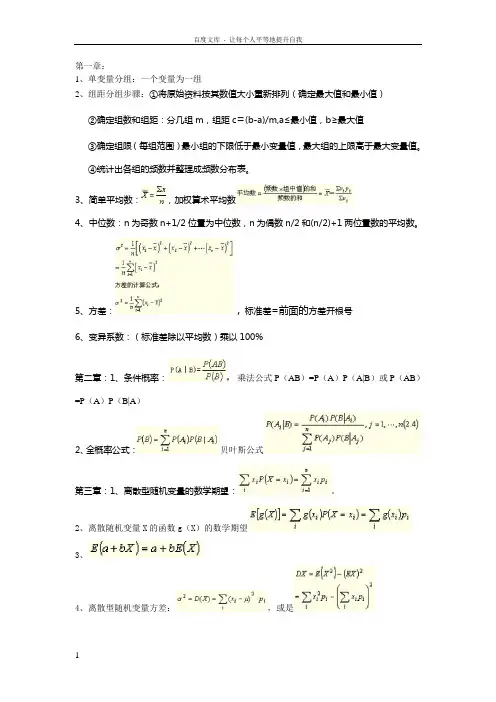 百度文库 - 让每个人平等地提升自我
第一章：
1、单变量分组：一个变量为一组
2、组距分组步骤：①将原始资料按其数值大小重新排列（确定最大值和最小值）
②确定组数和组距：分几组 m，组距 c＝(b-a)/m,a≤最小值，b≥最大值
③确定组限（每组范围）最小组的下限低于最小变量值，最大组的上限高于最大变量值。
④统计出各组的频数并整理成频数分布表。
3、简单平均数：X̄ = Σx / n，加权算术平均数 平均数 = (频数×组中值)的和 / 频数的和 = X̄ = Σv_i y_i / Σv_i
4、中位数：n 为奇数 n+1/2 位置为中位数，n 为偶数 n/2 和(n/2)+1 两位置数的平均数。
σ² = 1/n [(x₁ − x̄)² + (x₂ − x̄)² + … (xₙ − x̄)²]
= 1/n Σ_{i=1}^{n} (x_i − x̄)²
方差的计算公式:
σ² = 1/n Σ_{i=1}^{n} (x_i − X̄)²
5、方差：，标准差=前面的方差开根号
6、变异系数：（标准差除以平均数）乘以 100%
第二章：1、条件概率：P(A|B) = P(AB) / P(B)，乘法公式 P（AB）=P（A）P（A|B）或 P（AB）
=P（A）P（B|A）
2、全概率公式：P(B) = Σ_{i=1}^{n} P(A_i)P(B|A_i) 贝叶斯公式 P(A_i|B) = P(A_i)P(B|A_i) / Σ_{j=1}^{n} P(A_j)P(B|A_j), j = 1,⋯,n(2.4)
第三章：1、离散型随机变量的数学期望：Σ_i x_i P(X = x_i) = Σ_{i=1}^{n} x_i p_i .
2、离散随机变量 X 的函数 g（X）的数学期望 E[g(X)] = Σ_i g(x_i)P(X = x_i) = Σ_i g(x_i)p_i
3、E(a + bX) = a + bE(X)
4、离散型随机变量方差：σ² = D(X) = Σ_i (x_i − μ)² p_i ，或是 DX = E(X²) − (EX)²
= Σ_i x_i² p_i − (Σ_i x_i p_i)²
1